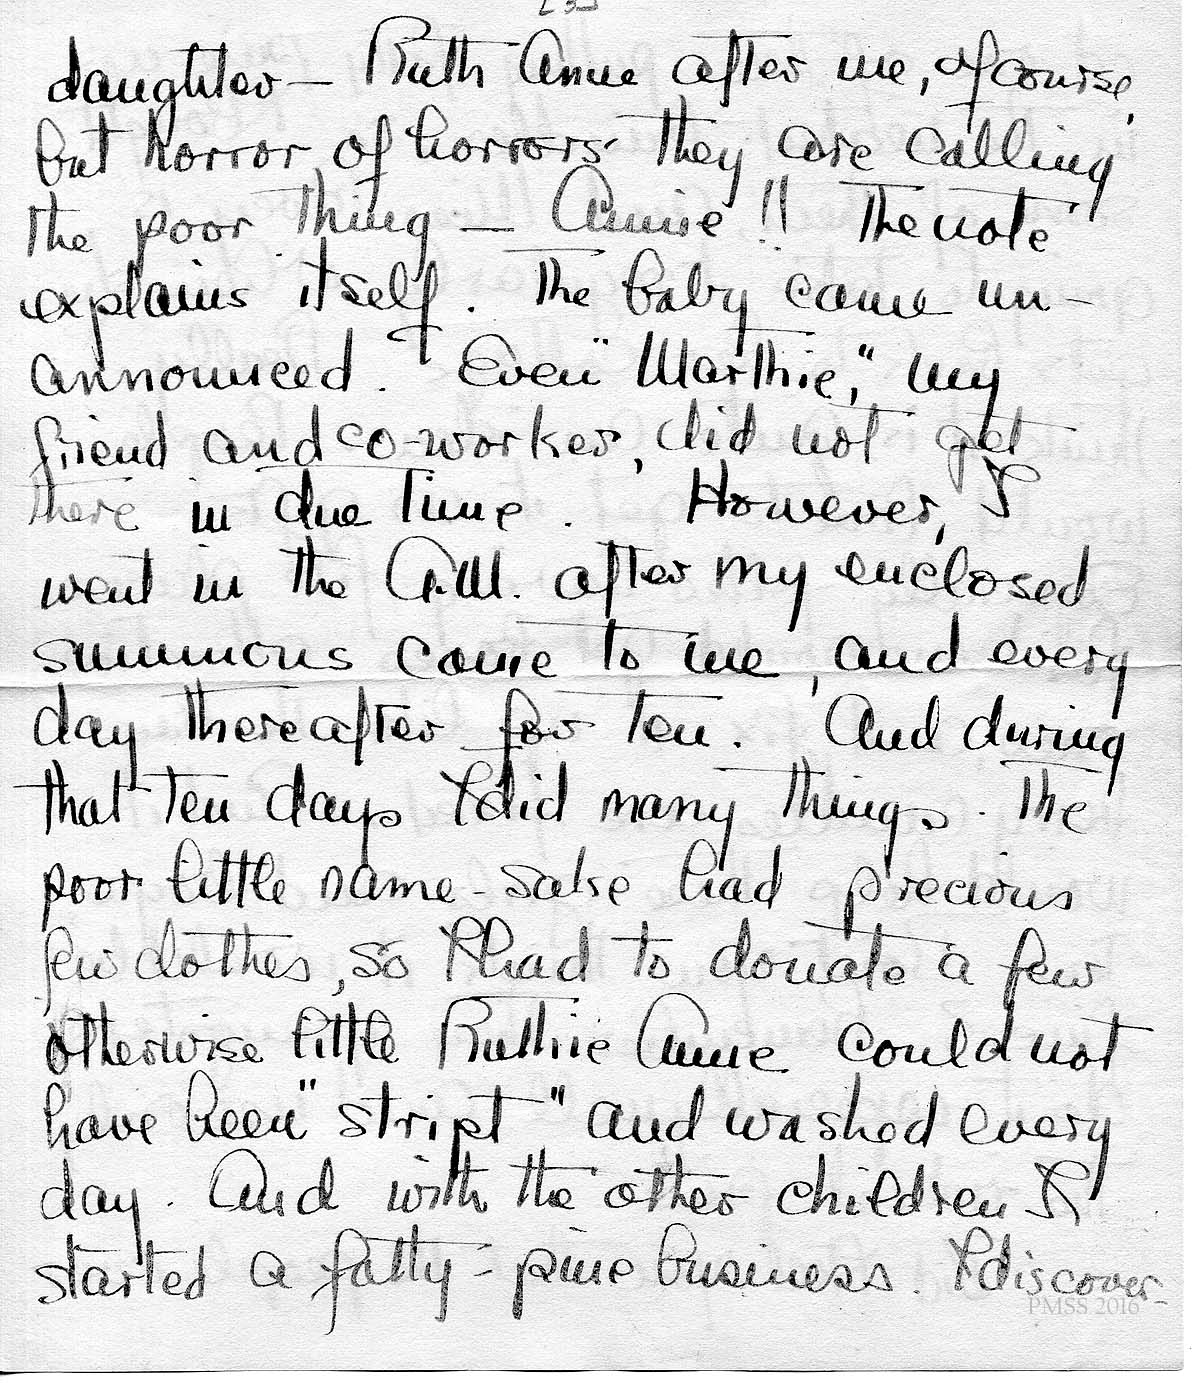 [3]
daughter — Ruth Anne after me, of course,
but horror of horrors they are calling
the poor thing — Annie !! The note
explains itself. The baby came un-
announced. Even "Marthie," my
friend and co-worker, did not get
there in due time. However, I
went in the A.M. after my enclosed
summons came to me, and every
day thereafter for ten. And during
that ten days I did many things. The
poor little name-sake had precious
few clothes, so I had to donate a few
otherwise little Ruthie Anne could not
have been "stript" and washed every
day. And with the other children I
started a fatty-pine business. I discover-
PMSS 2016